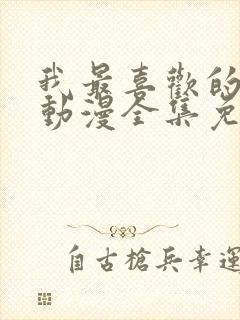 我最喜歡的
動漫全集免
自古槍兵幸運